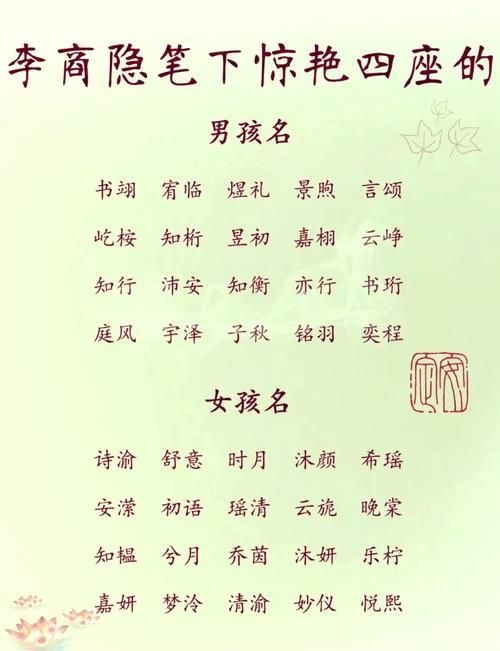 李商隐笔下惊艳四座的
男孩名
书翊 宥临 煜礼 景煦 言颂
屹桉 知桁 昱初 嘉栩 云峥
知行 沛安 知衡 亦行 书珩
庭风 宇泽 子秋 铭羽 奕程
女孩名
诗渝 舒意 时月 沐颜 希瑶
安潆 初语 瑶清 云旎 晚棠
知韫 兮月 乔茵 沐妍 乐柠
嘉妍 梦泠 清渝 妙仪 悦熙